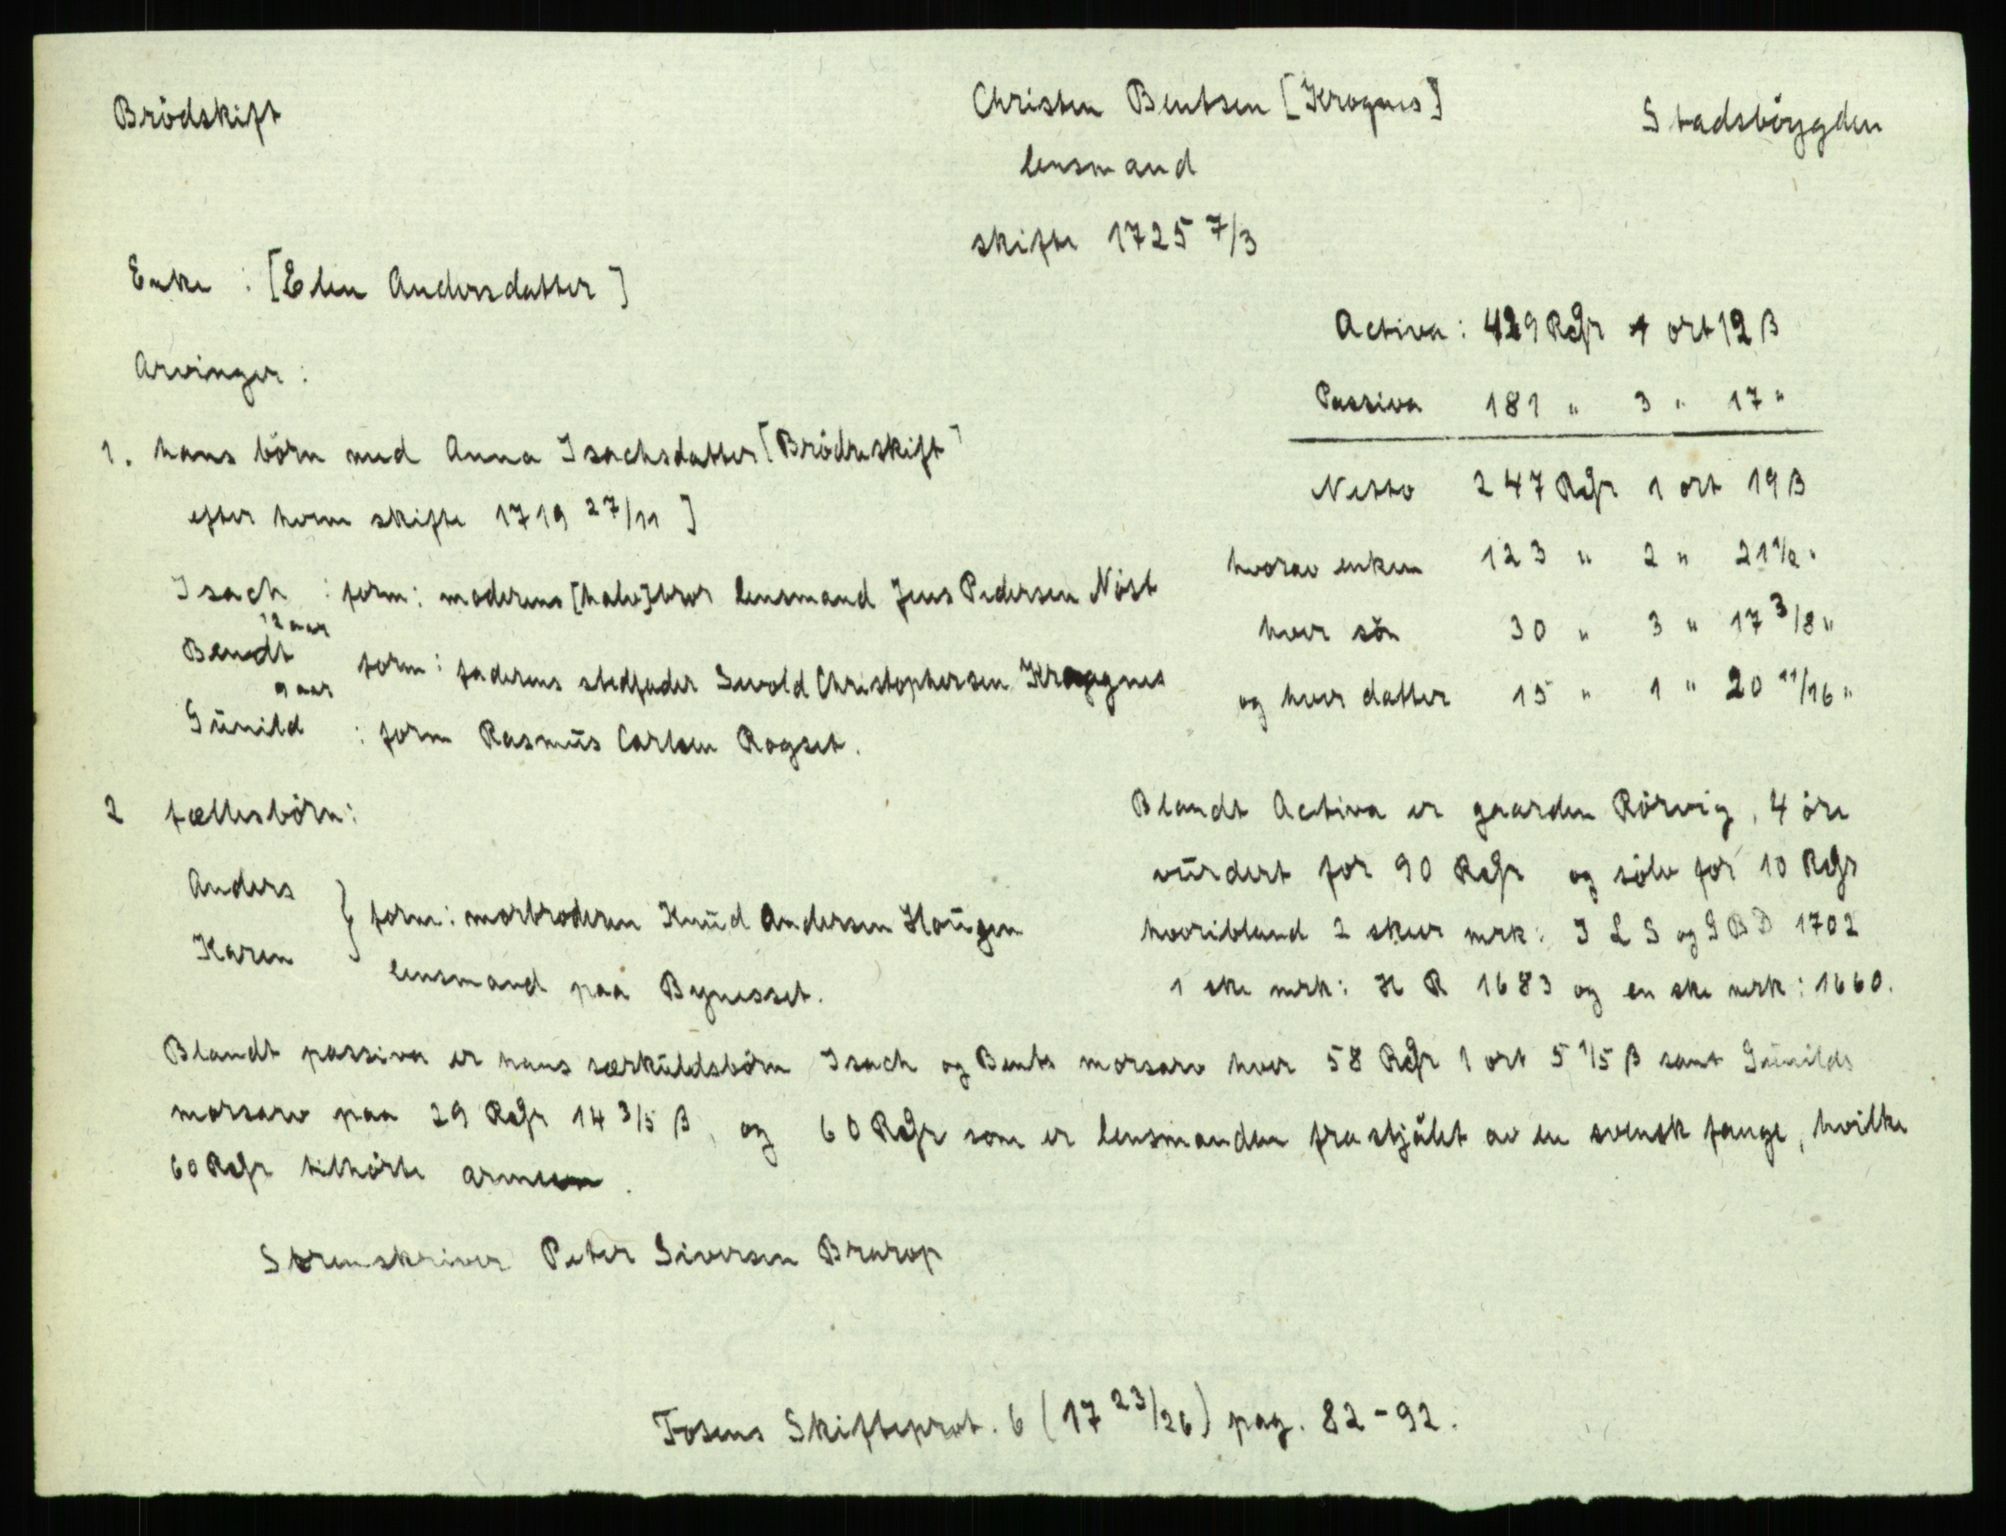 Brödskift
Christen Bentsen [Krognes]
Stadsböygden
lensmand
skifte 1725 7/3
Enke : [Elen Andersdatter]
Arvinger :
Activa : 429 Rdr 1 ort 12 β
Passiva 181 " 3 " 17 "
Netto 247 Rdr 1 ort 19 β
hvorav enken 123 " 2 " 21 1/2 "
hver sön 30 " 3 " 17 3/8 "
og hver datter 15 " 1 " 20 11/16 "
1. hans börn med Anna Isachsdatter [Brödreskift
efter herne skifte 1719 27/11 ]
Isach : form : moderens [halv]bror lensmand Jens Pedersen Nöst
12 aar
Bendt form : faderens stedfader Sivold Christophersen Krognes
9 aar
Günild : form Rasmüs Carlsen Rogset.
2 fællesbörn :
Anders
Karen } form : morbroderen Knüd Andersen Haügen
lensmand paa Bynesset.
Blandt Activa er gaarden Rörvig, 4 öre
vürdert for 90 Rdr og sölv for 10 Rdr
hvoribland 2 skeer mrk : I L S og S B D 1702
1 ske mrk : H R 1683 og en ske merk : 1660.
Blandt passiva er hans særküldsbörn Isach og Bents morsarv hver 58 Rdr 1 ort 5 1/5 β samt Günilds
morsarv paa 29 Rdr 14 3/5 β, og 60 Rdr som er lensmanden frastjålet av en svensk fange, hvilke
60 Rdr tilhörte armeen.
Sorenskriver Peter Siversen Brarop
Fosens Skifteprot. 6 (17 23/26) pag. 82-92.